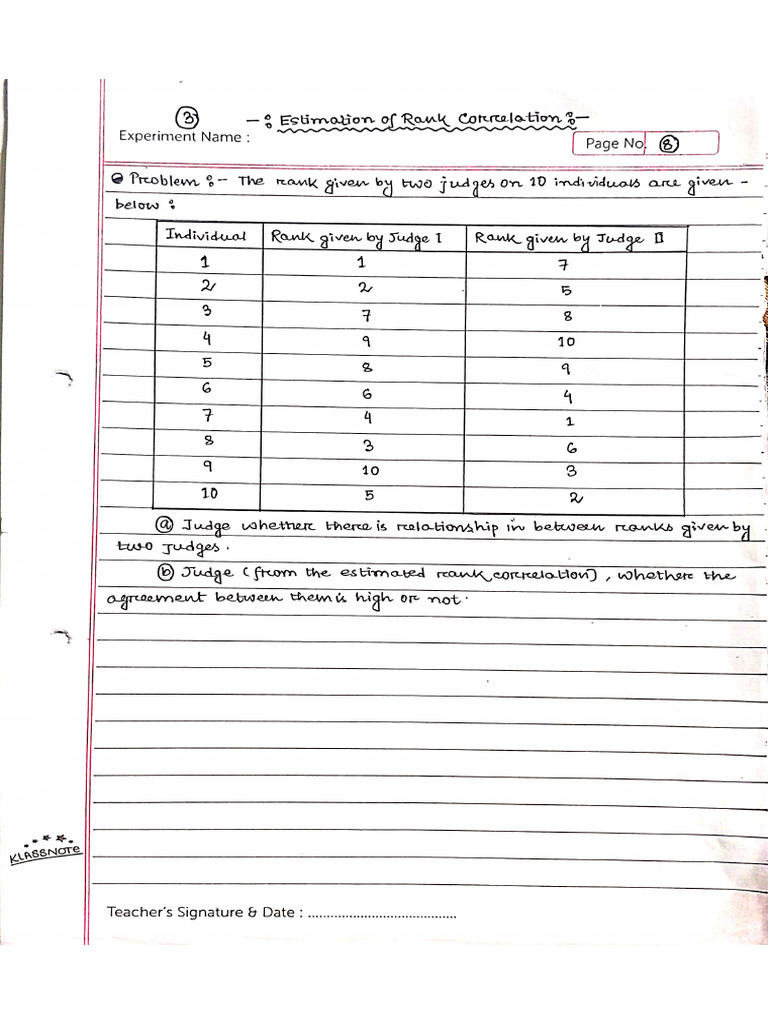 ③ -: Estimation of Rank Correlation :-
Experiment Name :
Page No. ⑧
Problem :- The rank given by two judges on 10 individuals are given -
below :
Individual Rank given by Judge I Rank given by Judge II
1 1 7
2 2 5
3 7 8
4 9 10
5 8 9
6 6 4
7 4 1
8 3 6
9 10 3
10 5 2
ⓐ Judge whether there is relationship in between ranks given by
two judges.
ⓑ Judge (from the estimated rank correlation), whether the
agreement between them is high or not.
KLASSNOTE
Teacher's Signature & Date : ........................................